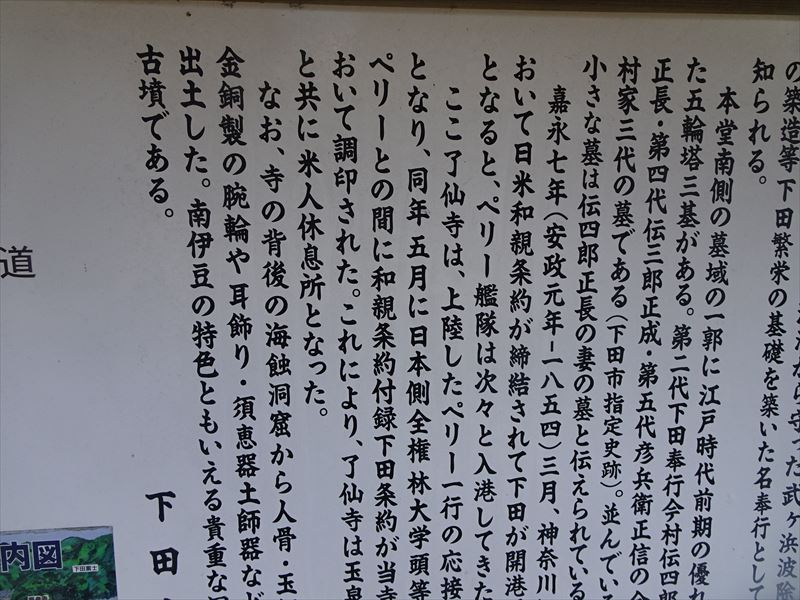 の築造等下田繁栄の基礎を築いた名奉行として
知られる。
本堂南側の墓域の一郭に江戸時代前期の優れ
た五輪塔三基がある。第二代下田奉行今村伝四郎
正長・第四代伝三郎正成・第五代彦兵衛正信の今
村家三代の墓である(下田市指定史跡)。並んでいる
小さな墓は伝四郎正長の妻の墓と伝えられている
嘉永七年(安政元年―一八五四)三月、神奈川
おいて日米和親条約が締結されて下田が開港
となると、ペリー艦隊は次々と入港してきた
ここ了仙寺は、上陸したペリー一行の応接
となり、同年五月に日本側全権 林大学頭等
ペリーとの間に和親条約付録下田条約が当寺
おいて調印された。これにより、了仙寺は玉泉
と共に米人休息所となった。
なお、寺の背後の海蝕洞窟から人骨・玉
金銅製の腕輪や耳飾り・須恵器土師器など
出土した。南伊豆の特色ともいえる貴重な
古墳である。
下田
道
内図
下田富士